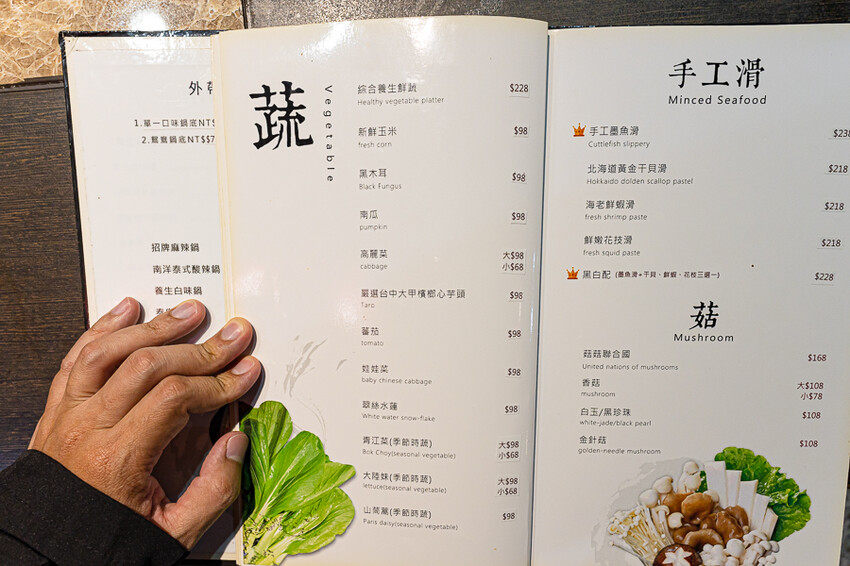 外帶
1.單一口味鍋底NT$
2.鴛鴦鍋底NT$7
招牌麻辣鍋
南洋泰式酸辣鍋
養生白味鍋
蔬
Vegetable
綜合養生鮮蔬 $228
Healthy vegetable platter
新鮮玉米 $98
fresh corn
黑木耳 $98
Black Fungus
南瓜 $98
pumpkin
高麗菜 大$98
cabbage 小$68
嚴選台中大甲檳榔心芋頭 $98
Taro
蕃茄 $98
tomato
娃娃菜 $98
baby chinese cabbage
翠絲水蓮 $98
White water snow-flake
青江菜(季節時蔬) 大$98
Bok Choy(seasonal vegetable) 小$68
大陸妹(季節時蔬) 大$98
lettuce(seasonal vegetable) 小$68
山茼蒿(季節時蔬) $98
Paris daisy(seasonal vegetable)
手工滑
Minced Seafood
手工墨魚滑 $238
Cuttlefish slippery
北海道黃金干貝滑 $218
Hokkaido dolden scallop pastel
海老鮮蝦滑 $218
fresh shrimp paste
鮮嫩花技滑 $218
fresh squid paste
黑白配 (墨魚滑+干貝、鮮蝦、花枝三選一) $228
菇
Mushroom
菇菇聯合國 $168
United nations of mushrooms
香菇 大$108
mushroom 小$78
白玉/黑珍珠 $108
white-jade/black pearl
金針菇 $108
golden-needle mushroom